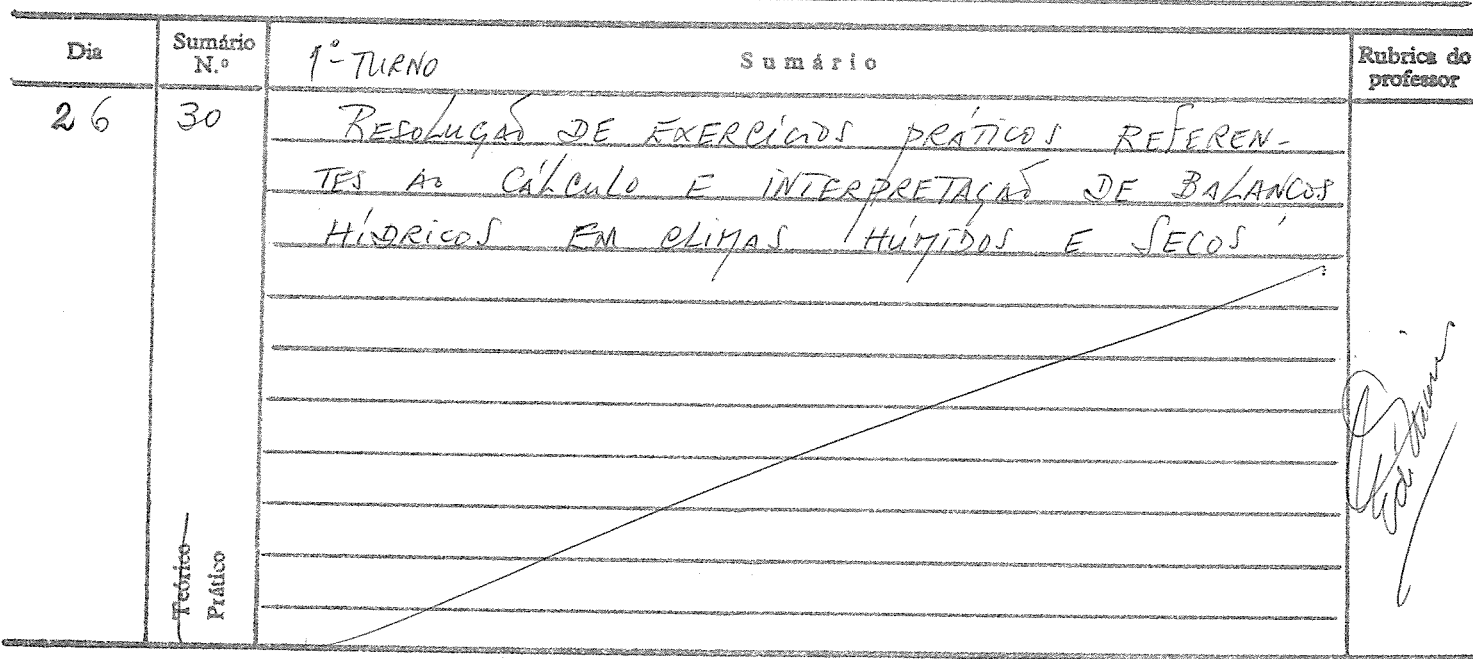 Dia
Sumário N.º
1º TURNO
Sumário
Rubrica do professor
26
30
RESOLUÇÃO DE EXERCÍCIOS PRÁTICOS REFEREN-
TES AO CÁLCULO E INTERPRETAÇÃO DE BALANÇOS
HÍDRICOS EM CLIMAS HÚMIDOS E SECOS.
Teórico
Prático